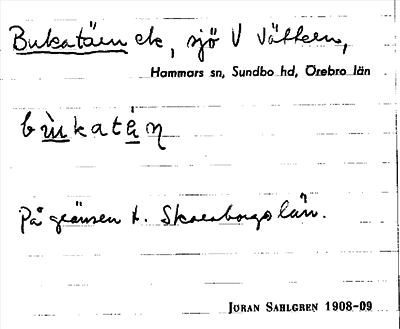 Bukatäen ek, sjö V Vättern,
Hammars sn, Sundbo hd, Örebro län
bùkatèn
på gränsen t. Skaraborgs län.
JÖRAN SAHLGREN 1908-09